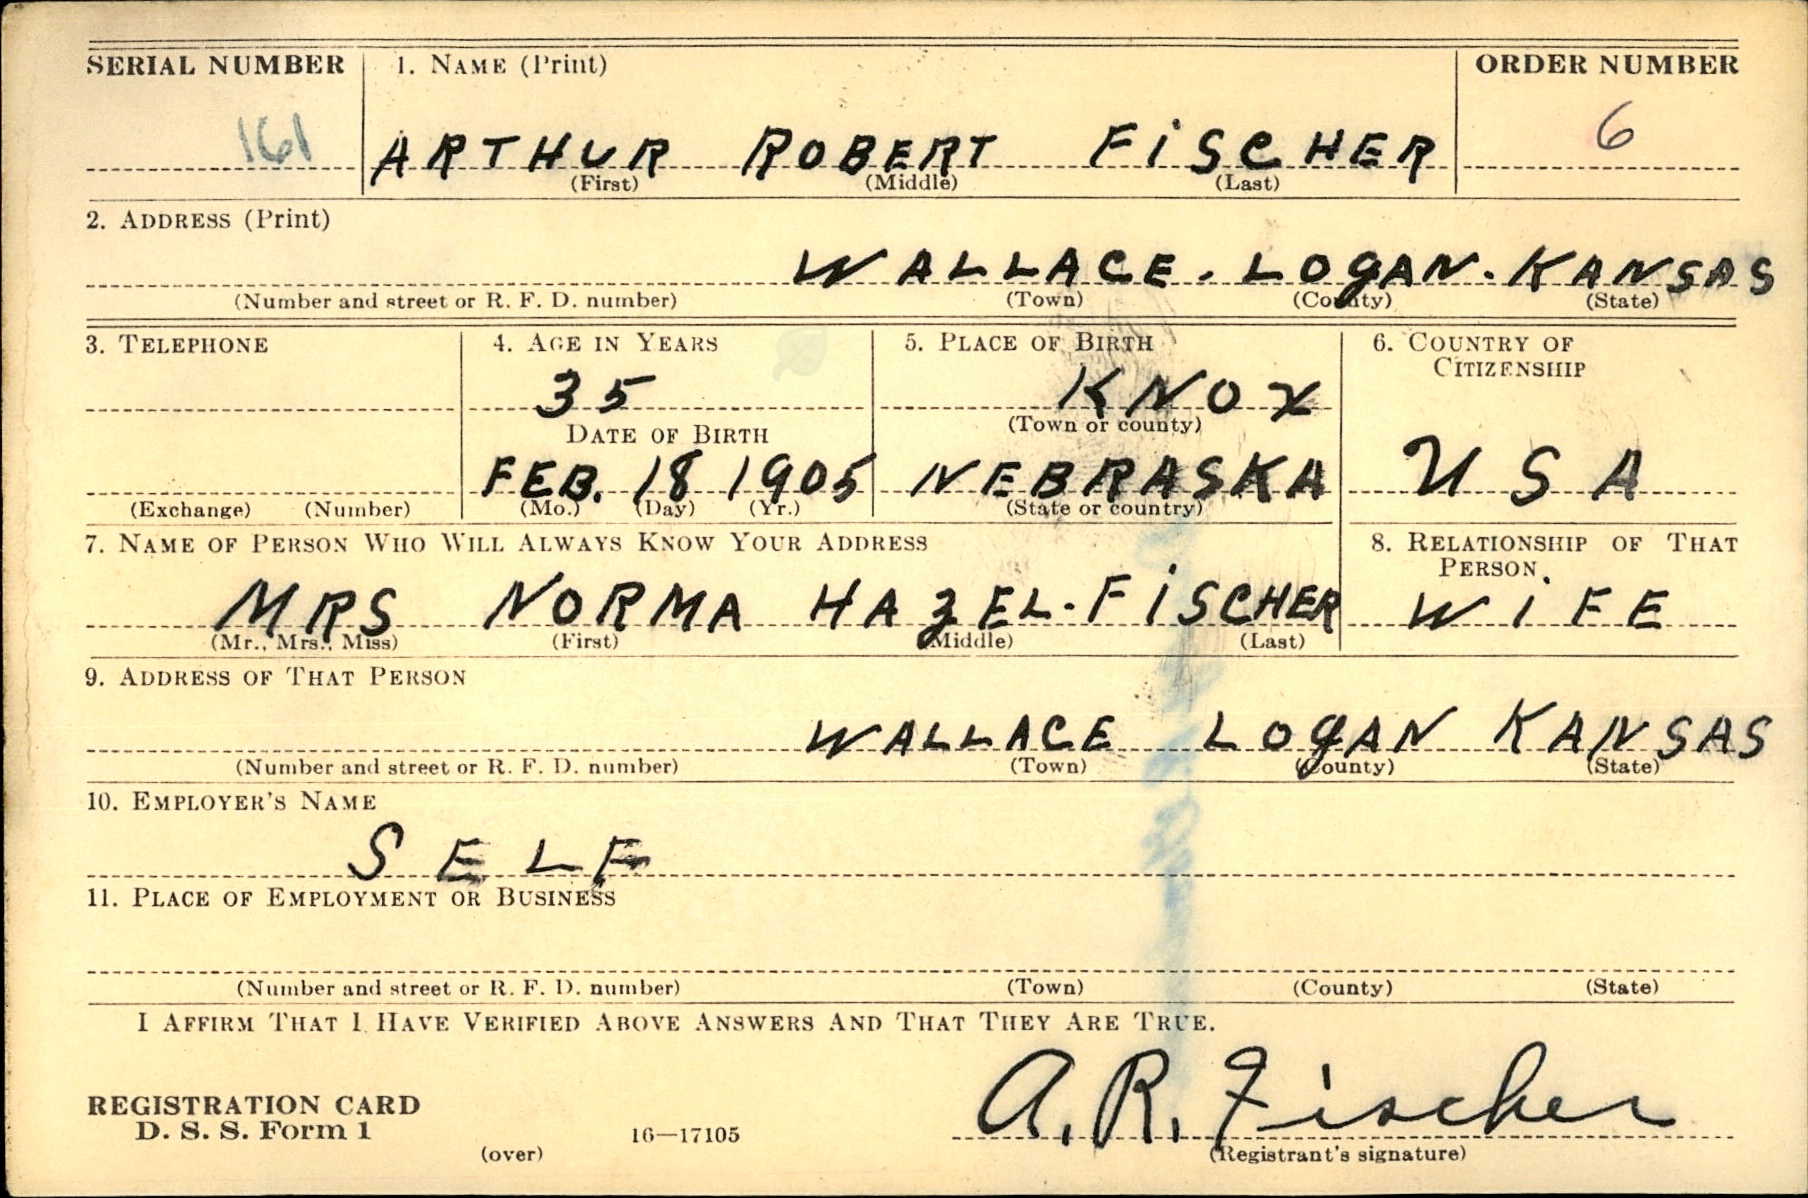 SERIAL NUMBER 1. NAME (Print) ORDER NUMBER
161 ARTHUR ROBERT FiSCHER 6
(First) (Middle) (Last)
2. ADDRESS (Print)
WALLACE. LOgAN. KANSAS
(Number and street or R. F. D. number) (Town) (County) (State)
3. TELEPHONE 4. AGE IN YEARS 5. PLACE OF BIRTH 6. COUNTRY OF
CITIZENSHIP
35 KNOX
DATE OF BIRTH (Town or county)
FEB. 18 1905 NEBRASKA USA
(Exchange) (Number) (Mo.) (Day) (Yr.) (State or country)
7. NAME OF PERSON WHO WILL ALWAYS KNOW YOUR ADDRESS 8. RELATIONSHIP OF THAT
PERSON
MRS NORMA HAzEL. FiSCHER WiFE
(Mr., Mrs., Miss) (First) (Middle) (Last)
9. ADDRESS OF THAT PERSON
WALLACE LOgAN KANSAS
(Number and street or R. F. D. number) (Town) (County) (State)
10. EMPLOYER'S NAME
SELF
11. PLACE OF EMPLOYMENT OR BUSINESS
(Number and street or R. F. D. number) (Town) (County) (State)
I AFFIRM THAT I HAVE VERIFIED ABOVE ANSWERS AND THAT THEY ARE TRUE.
REGISTRATION CARD
D. S. S. Form 1 16—17105 A. R. Fischer
(over) (Registrant's signature)